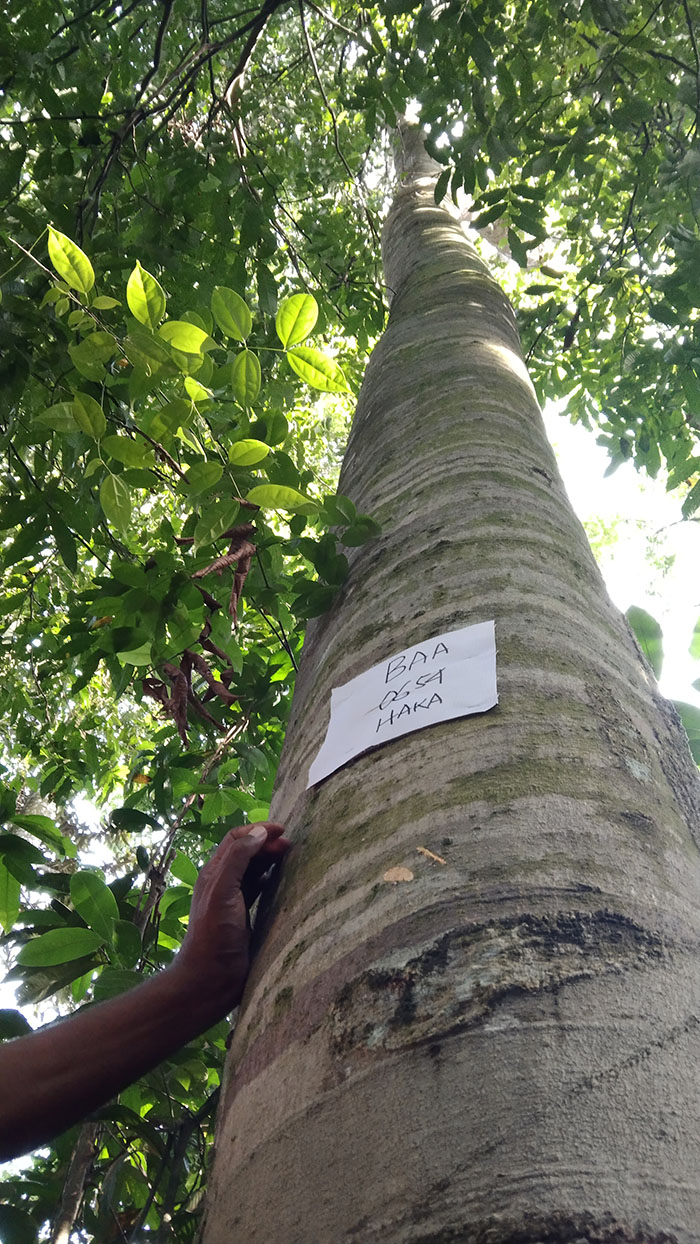 BAA
0654
HAKA